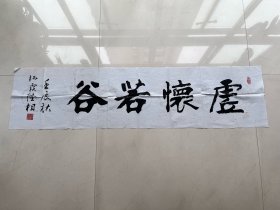 虚懷若谷
壬辰秋